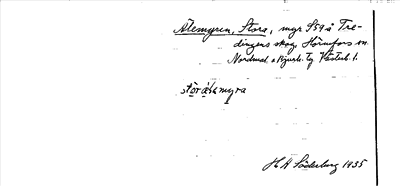 Åtemyren, Stora, myr S59å Tre-
dingens skog Hörnefors sn
Nordmal. o Bjurh. tg Västerb. l.
stòrátamyra
H A Söderberg 1935